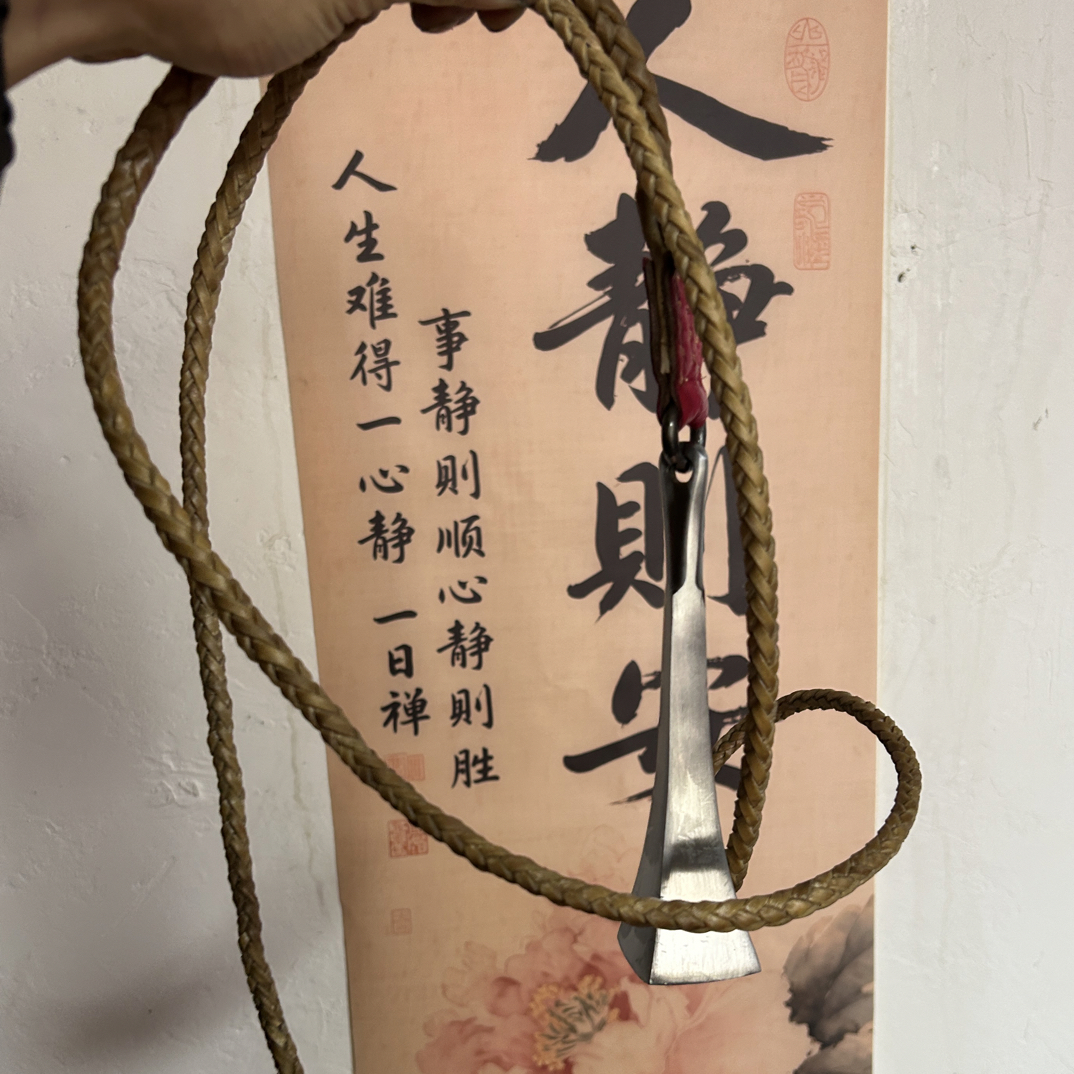 人静則安
事静则顺心静则胜
人生难得一心静 一日禅